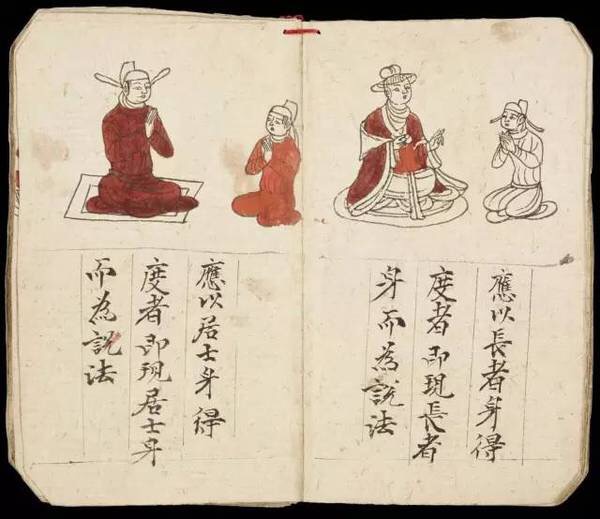 應以長者身得
度者即現長者
身而為說法
應以居士身得
度者即現居士身
而為說法